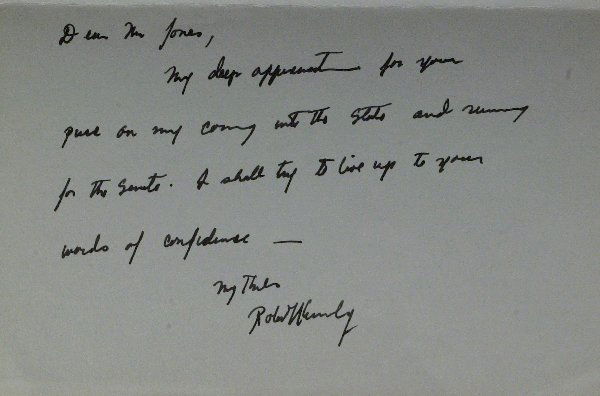 Dear Mr Jones,
My deep appreciation for your
on my coming into the State and running
for the Senate. I shall try to live up to your
words of confidence —
My Thanks
Robert Kennedy